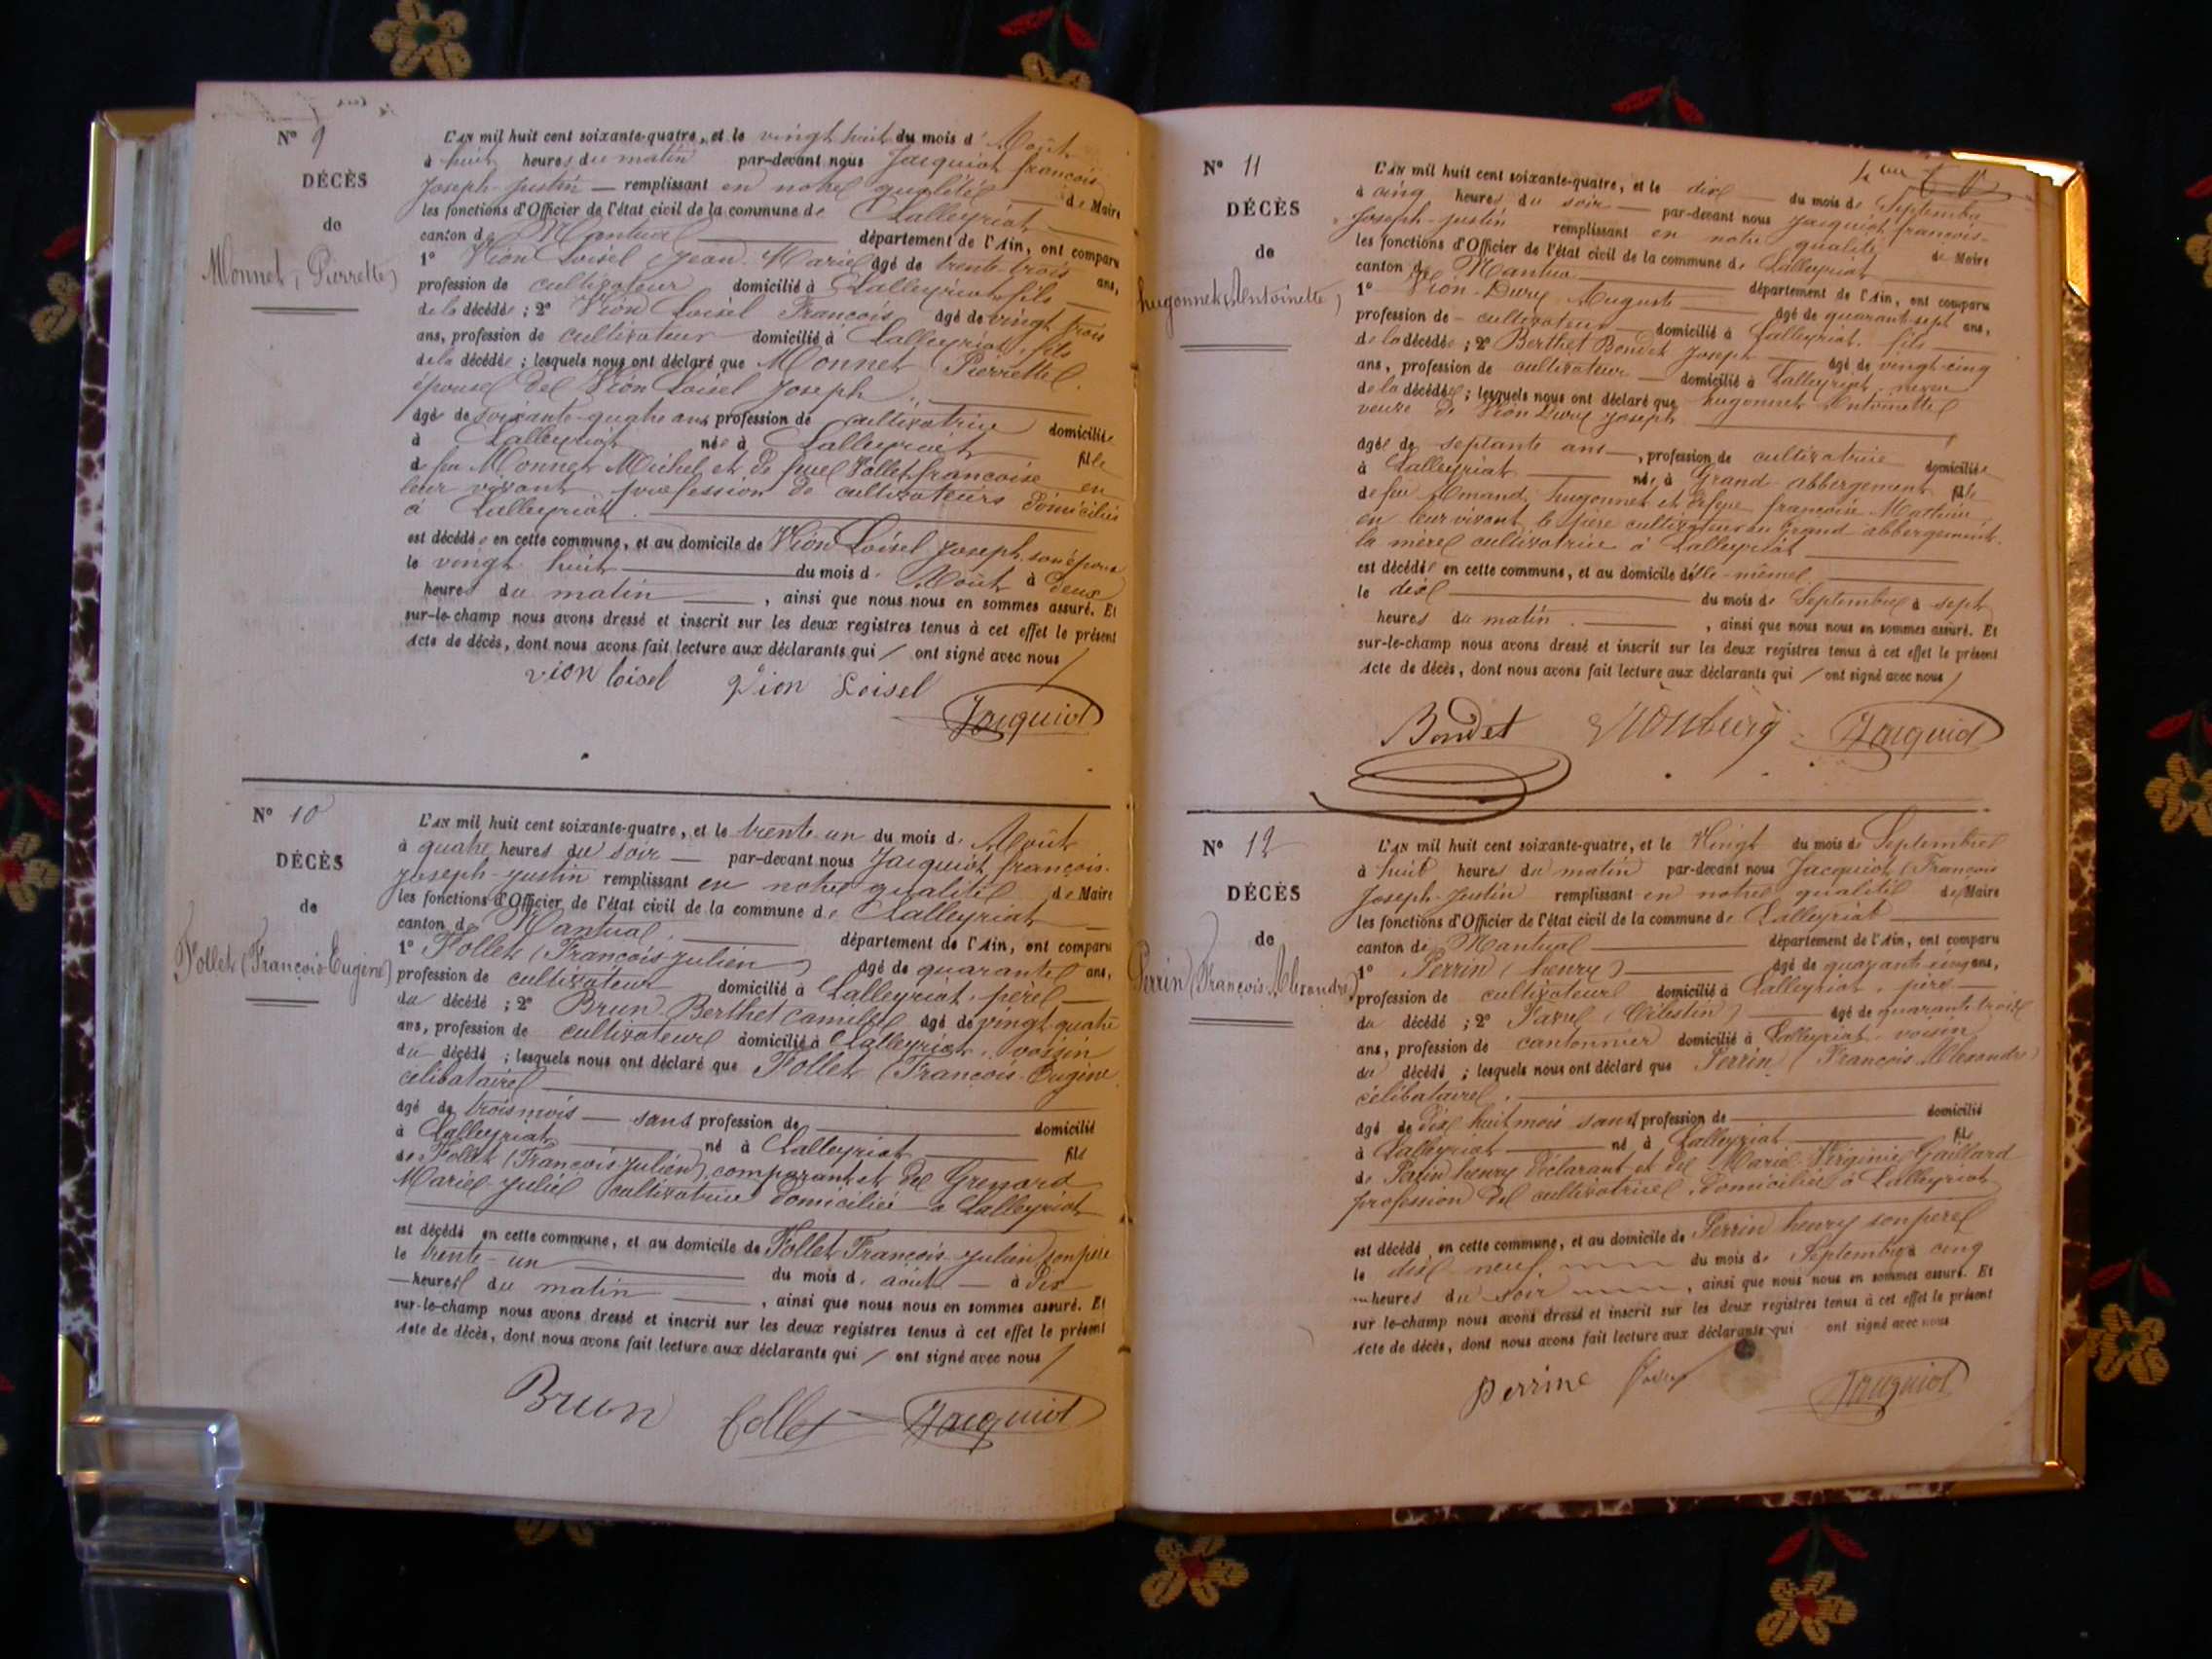 N° 9
DÉCÈS
de
Monnet (Pierrette)
L'AN mil huit cent soixante-quatre, et le vingt huit du mois d' Août
à huit heures du matin par-devant nous Jacquiot françois
Joseph-Justin — remplissant en notre qualité de Maire
les fonctions d'Officier de l'état civil de la commune de Lalleyriat
canton de Mantua département de l'Ain, ont comparu
1° Vion Loisel (Jean-Marie) âgé de trente-trois ans,
profession de cultivateur domicilié à Lalleyriat fils
de la décédée ; 2° Vion Loisel François âgé de vingt trois
ans, profession de cultivateur domicilié à Lalleyriat, fils
de la décédée ; lesquels nous ont déclaré que Monnet Pierrette
épouse de Vion Loisel Joseph
âgée de soixante-quatre ans profession de cultivatrice domiciliée
à Lalleyriat née à Lalleyriat fille
de feu Monnet Michel et de feue Vollet francoise en
leur vivant profession de cultivateurs domiciliés
à Lalleyriat.
est décédée en cette commune, et au domicile de Vion Loisel Joseph son époux
le vingt huit du mois d' Août à deux
heures du matin, ainsi que nous nous en sommes assuré. Et
sur-le-champ nous avons dressé et inscrit sur les deux registres tenus à cet effet le présent
Acte de décès, dont nous avons fait lecture aux déclarants qui / ont signé avec nous /
vion loisel Vion Loisel
Jacquiot
N° 10
DÉCÈS
de
Follet (François-Eugène)
L'AN mil huit cent soixante-quatre, et le trente-un du mois d' Août
à quatre heures du soir — par-devant nous Jacquiot françois-
Joseph-Justin remplissant en notre qualité de Maire
les fonctions d'Officier de l'état civil de la commune de Lalleyriat
canton de Mantua département de l'Ain, ont comparu
1° Follet (François-Julien) âgé de quarante ans,
profession de cultivateur domicilié à Lalleyriat, père
du décédé ; 2° Brun-Berthet Camille âgé de vingt quatre
ans, profession de cultivateur domicilié à Lalleyriat, voisin
du décédé ; lesquels nous ont déclaré que Follet (François-Eugène
célibataire
âgé de trois mois — sans profession de domicilié
à Lalleyriat né à Lalleyriat fils
de Follet (François-Julien) comparant et de Grenard
Marie-Julie cultivatrice domiciliée à Lalleyriat
est décédé en cette commune, et au domicile de Follet François-Julien son père
le trente-un du mois d' août — à dix
heures du matin, ainsi que nous nous en sommes assuré. Et
sur-le-champ nous avons dressé et inscrit sur les deux registres tenus à cet effet le présent
Acte de décès, dont nous avons fait lecture aux déclarants qui / ont signé avec nous /
Brun follet Jacquiot
N° 11
DÉCÈS
de
hugonnet (Antoinette)
L'AN mil huit cent soixante-quatre, et le dix du mois de Septembre
à cinq heures du soir — par-devant nous Jacquiot françois-
Joseph-Justin remplissant en notre qualité de Maire
les fonctions d'Officier de l'état civil de la commune de Lalleyriat
canton de Mantua département de l'Ain, ont comparu
1° Vion-Dury Auguste âgé de quarante-sept ans,
profession de cultivateur domicilié à Lalleyriat, fils
de la décédée ; 2° Berthet Bondet Joseph âgé de vingt-cinq
ans, profession de cultivateur — domicilié à Lalleyriat, neveu
de la décédée ; lesquels nous ont déclaré que hugonnet Antoinette
veuve de Vion Dury Joseph
âgée de septante ans, profession de cultivatrice domiciliée
à Lalleyriat née à Grand-abbergement fille
de feu Amand hugonnet et de françoise Mathieu
en leur vivant le père cultivateur au Grand-abbergement.
la mère cultivatrice à Lalleyriat
est décédée en cette commune, et au domicile d'elle-même
le dix du mois de Septembre à sept
heures du matin, ainsi que nous nous en sommes assuré. Et
sur-le-champ nous avons dressé et inscrit sur les deux registres tenus à cet effet le présent
Acte de décès, dont nous avons fait lecture aux déclarants qui / ont signé avec nous /
Bondet Jacquiot
N° 12
DÉCÈS
de
Perrin (François-Alexandre)
L'AN mil huit cent soixante-quatre, et le Vingt du mois de Septembre
à huit heures du matin par-devant nous Jacquiot (François
Joseph-Justin remplissant en notre qualité de Maire
les fonctions d'Officier de l'état civil de la commune de Lalleyriat
canton de Mantua département de l'Ain, ont comparu
1° Perrin (henry) âgé de quarante-cinq ans,
profession de cultivateur domicilié à Lalleyriat, père
du décédé ; 2° (Célestin) âgé de quarante-trois
ans, profession de cantonnier domicilié à Lalleyriat voisin
du décédé ; lesquels nous ont déclaré que Perrin (François-Alexandre)
célibataire.
âgé de dix huit mois sans profession de domicilié
à Lalleyriat né à Lalleyriat fils
de Perrin henry déclarant et de Marie-Virginie Gaillard
profession de cultivatrice, domiciliée à Lalleyriat
est décédé en cette commune, et au domicile de Perrin henry son père
le dix neuf du mois de Septembre à cinq
heures du soir, ainsi que nous nous en sommes assuré. Et
sur-le-champ nous avons dressé et inscrit sur les deux registres tenus à cet effet le présent
Acte de décès, dont nous avons fait lecture aux déclarants qui ont signé avec nous
perrine Jacquiot